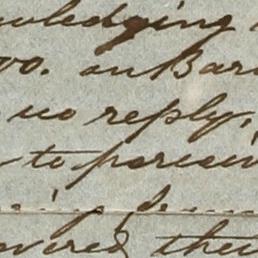 wledging
00. on Bar
no reply,
to perceiv
vered the